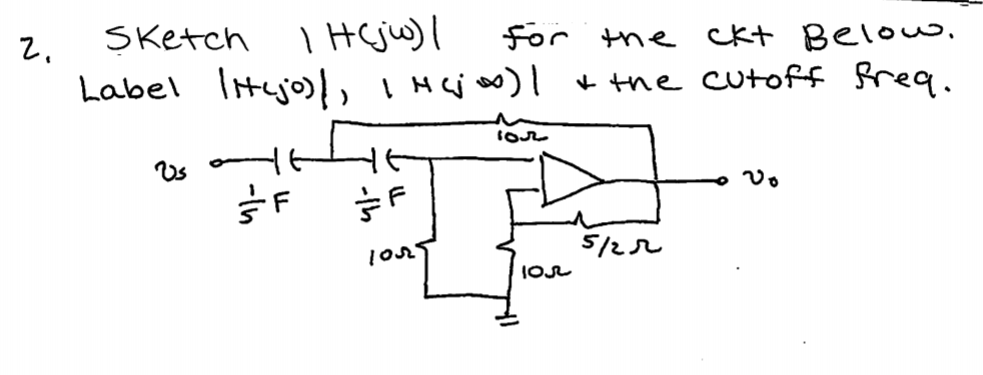 2. Sketch |H(jω)| for the ckt Below.
Label |H(j0)|, |H(j∞)| & the cutoff freq.
10Ω
vs
vo
1/5 F
1/5 F
5/2 Ω
10Ω
10Ω